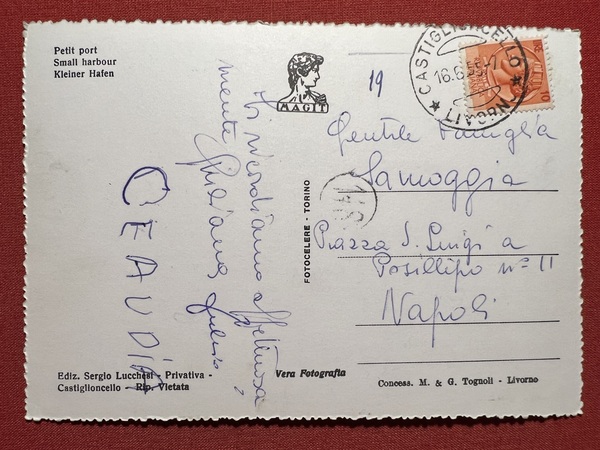 Petit port
Small harbour
Kleiner Hafen
MAGIT
19
CASTIGLIONCELLO
16.6.58-7
LIVORNO
Vi ricordiamo affettuosa
mente
CLAUDIA
Gentile Famiglia
Samoggia
Piazza S. Luigi a
Posillipo n° 11
Napoli
FOTOCELERE - TORINO
Ediz. Sergio Lucchesi - Privativa -
Castiglioncello - Rip. Vietata
Vera Fotografia
Concess. M. & G. Tognoli - Livorno